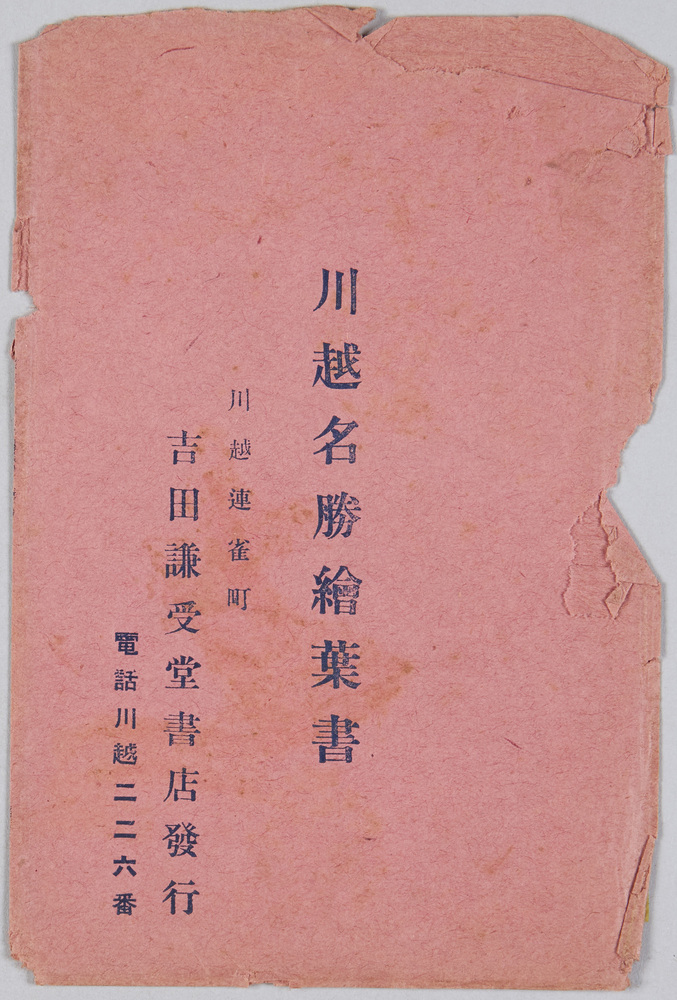 川越名勝繪葉書
川越連雀町
吉田謙受堂書店發行
電話川越二二六番